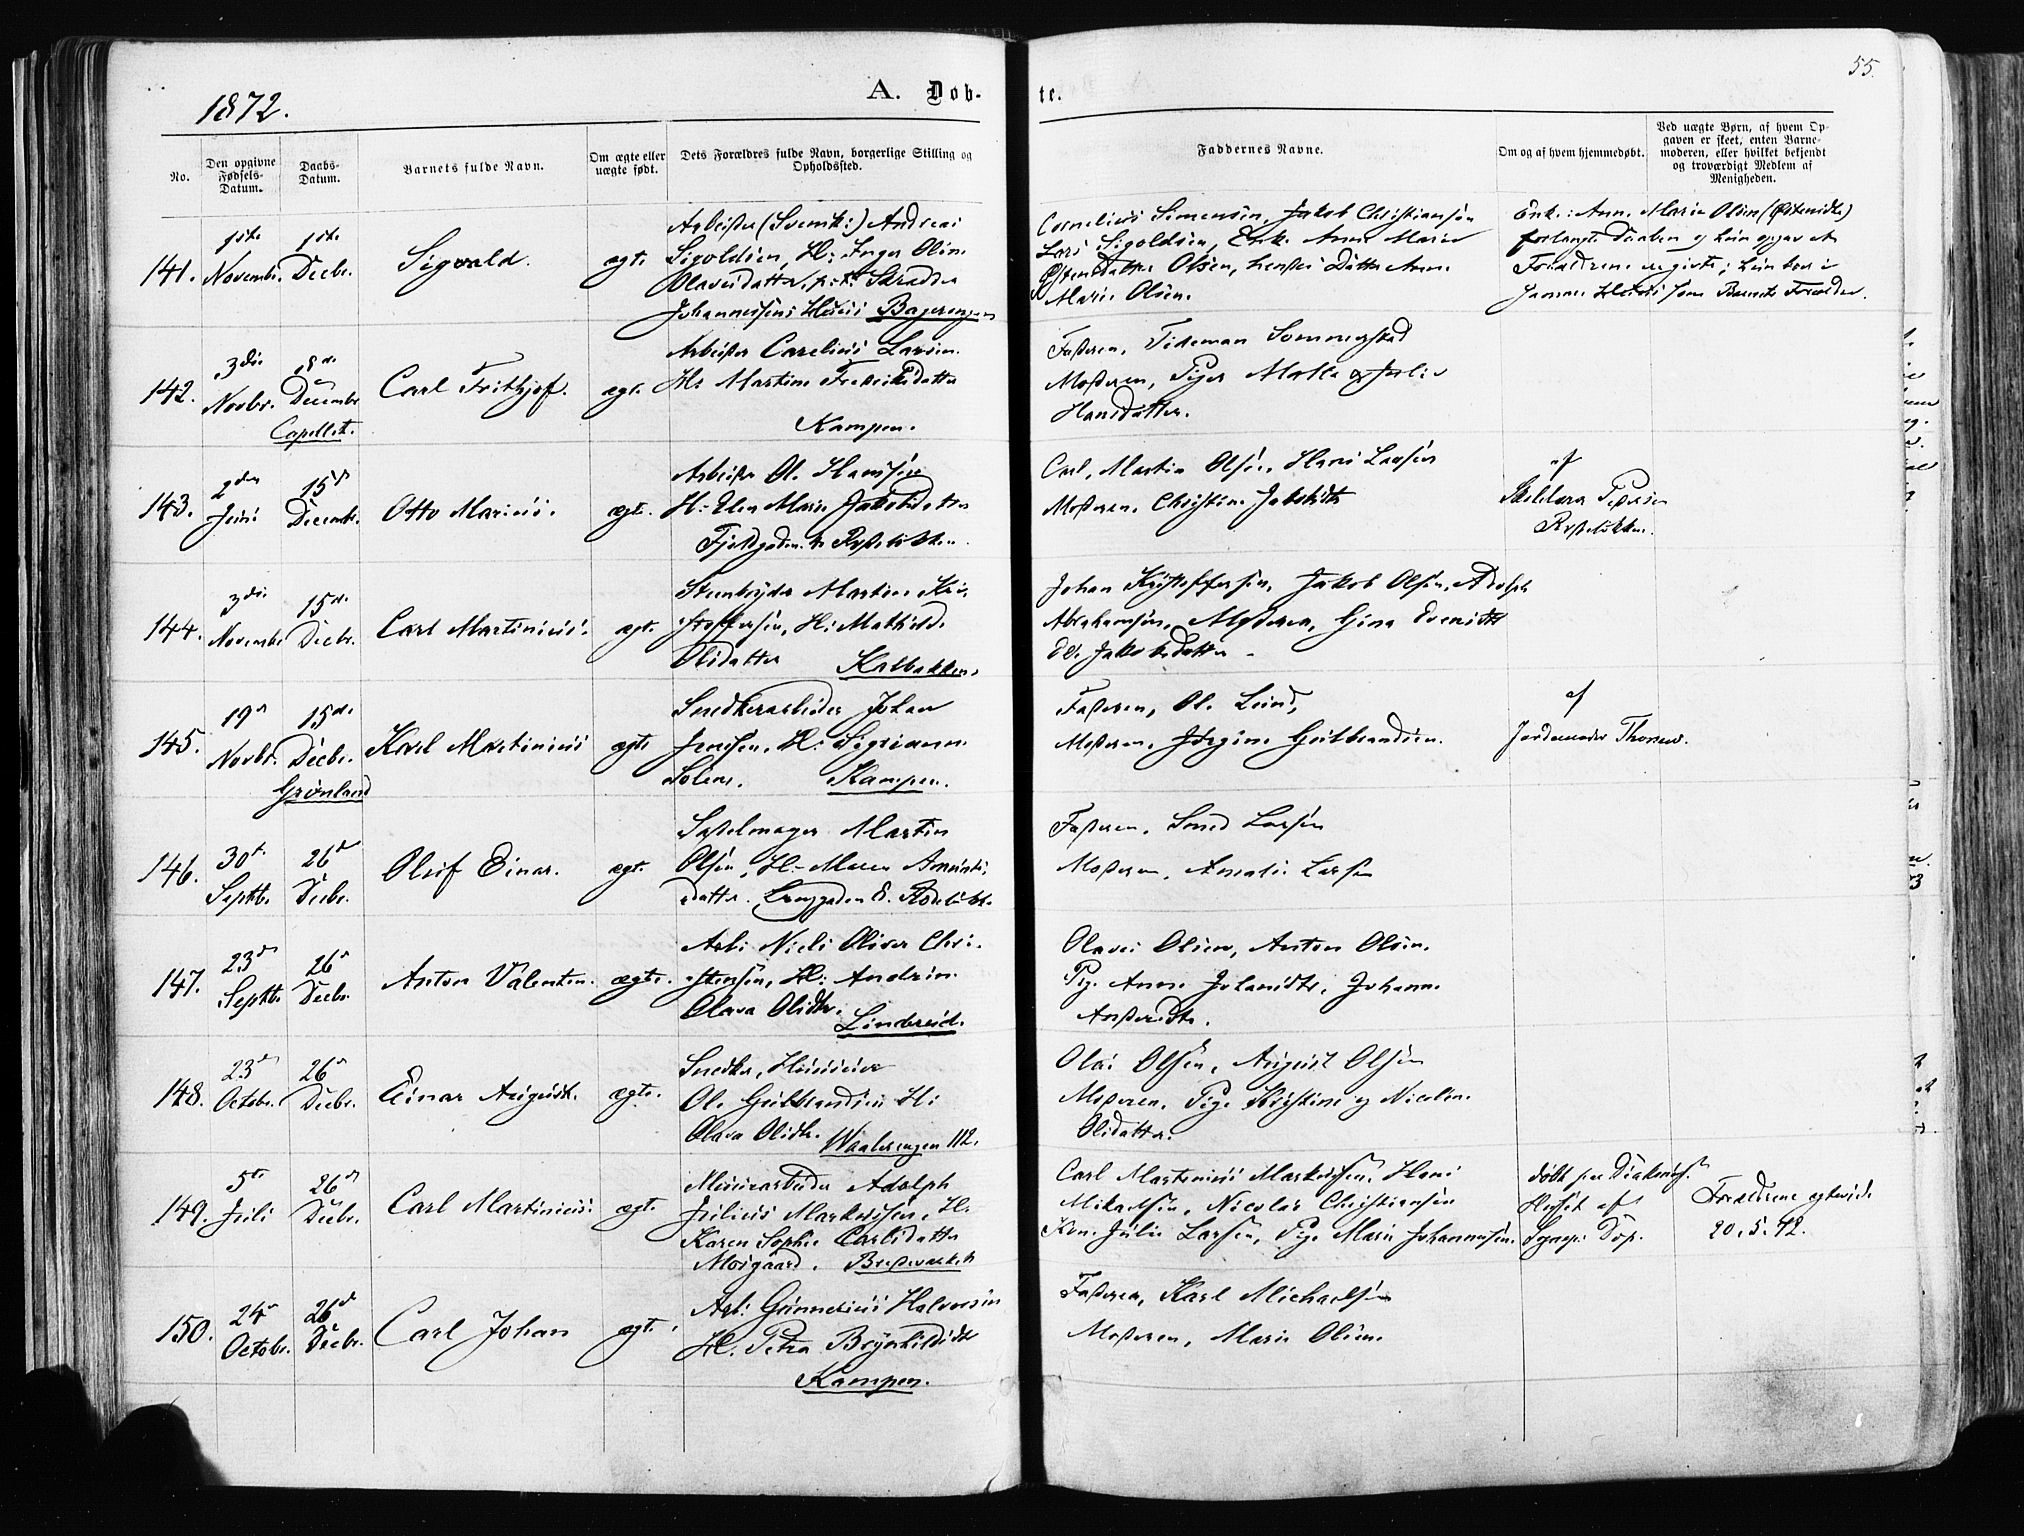 1872.
A. Døb-
te.
55.
No.
Den opgivne Fødsels-Datum.
Daabs-Datum.
Barnets fulde Navn.
Om ægte eller uægte født.
Dets Forældres fulde Navn, borgerlige Stilling og Opholdssted.
Faddernes Navne.
Om og af hvem hjemmedøbt.
Ved uægte Børn, af hvem Op-
gaven er skeet, enten Barne-
moderen, eller hvilket bekjendt
og troværdigt Medlem af
Menigheden.
141.
1ste
Novembr.
1ste
Decbr.
Sigvald.
ægte
Arbeider (Svensk:) Andreas
Sigoldsen, H: Inger Oline
Olavesdatter,
Johannessens Huus
Cornelius Simensen, Jakob Christiansen
Lars Sigoldsen, Enke Anne Marie
Østensdatter Olsen, hendes Datter Anne
Marie Olsen.
Enke: Anne Marie Olsen (Østensdtr)
forlangte Daaben og hun opgav at
Forældrene ere givte; hun bor i
samme Huus som Barnets Forældre.
142.
3die
Novbr.
8de
Decembr
Capellet.
Carl Frithjof.
ægte
Arbeider Carelius Larsen.
H: Martine Fredriksdatter
Kampen.
Faderen, Tideman Sommerstad
Moderen, Piger Malla og Julie
Hansdatter.
143.
2den
Juni
15de
Decembr.
Otto Marius.
ægte.
Arbeider Ole Hansen
H: Elen Marie Jakobsdatter
Fjeldgaden
Carl, Martin Olsen, Hans Larsen
Moderen, Christine Jakobsdtr
af
Pedersen
144.
3die
Novembr
15de
Decbr.
Carl Martinius.
ægte
Steenbryder Martin Kri-
stoffersen, H: Mathilde
Olsdatter Kalbakken.
Johan Kristoffersen, Jakob Olsen, Adolph
Abrahamsen, Moderen, Gina Evensdtr
Jakobsdatter
145.
19de
Novbr.
15de
Decbr.
Grønland
Karl Martinius
ægte
Snedkerarbeider Johan
Jensen, H:
Kampen.
Faderen, Ole Lund,
Moderen, Jørgine Gulbrandsen.
af
Jordemoder Thoresen.
146.
30te
Septbr.
26de
Decbr.
Oluf Einar.
ægte.
Sadelmager Martin
Olsen, H: Maren Amunds-
datter.
Faderen, Smed Larsen
Moderen, Amalie Larsen
147.
23de
Septbr.
26de
Decbr.
Anton Valentin.
ægte.
Arb: Niels Oliver Chri-
stensen, H: Andrine
Olava Olsdtr.
Linderud.
Olaves Olsen, Anton Olsen.
Pige Anne Johansdtr, Johanne
Andersdtr.
148.
23de
Octobr.
26de
Decbr.
Einar August.
ægte.
Snedker, Huuseier
Ole Gulbrandsen H:
Olava Olsdtr. Waalerengen 112.
Olai Olsen, August Olsen
Moderen, Pige Kristine og Nicoline
Olsdatter.
149.
5te
Juli
26de
Decbr.
Carl Martinius.
ægte.
Muurarbeider Adolph
Julius Markussen, H:
Karen Sophie Carlsdatter
Moigaard.
Carl Martinius Markussen, Hans
Mikaelsen, Nicolai Christiansen
Kone Julie Larsen, Pige Marie Johannesen.
døbt paa Diakonisse
Huset af
Forældrene egtevide
20.5.72.
150.
24de
Octobr.
26de
Decbr.
Carl Johan
ægte.
Arb: Gunnerius Halvorsen
H: Petra Brynhildsdtr
Kampen.
Faderen, Karl Michaelsen
Moderen, Marie Olsen.